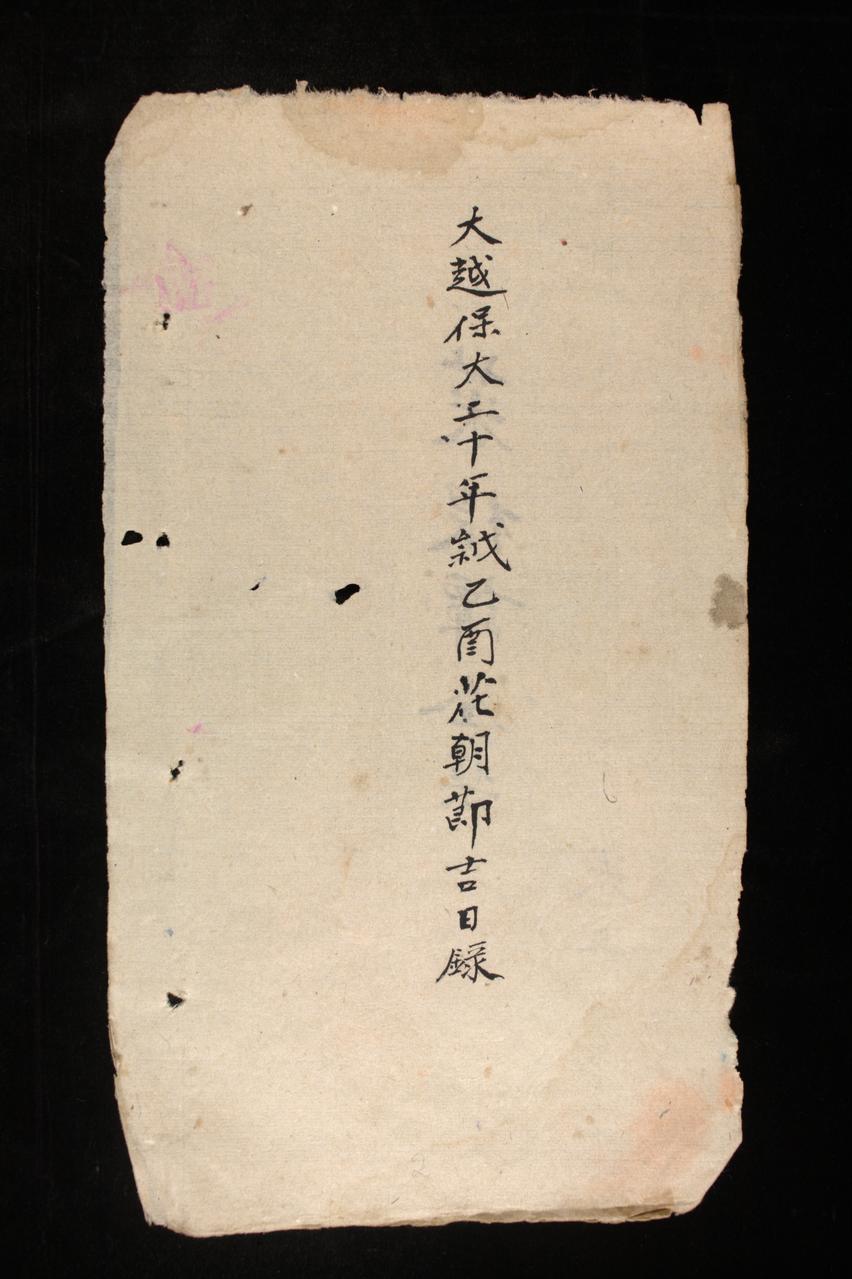 大越保大二十年歲乙酉花朝莭吉日錄
2